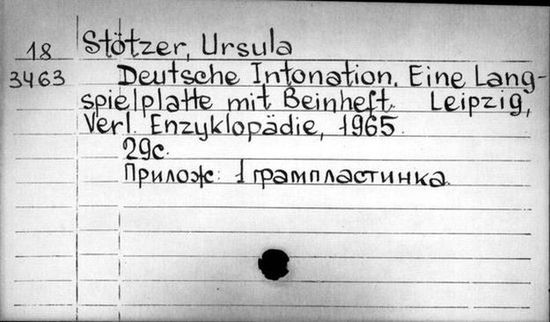 18
3463
Stötzer, Ursula
Deutsche Intonation. Eine Lang-
spielplatte mit Beinheft. Leipzig,
Verl. Enzyklopädie, 1965.
29с.
Прилож: 1 грампластинка.